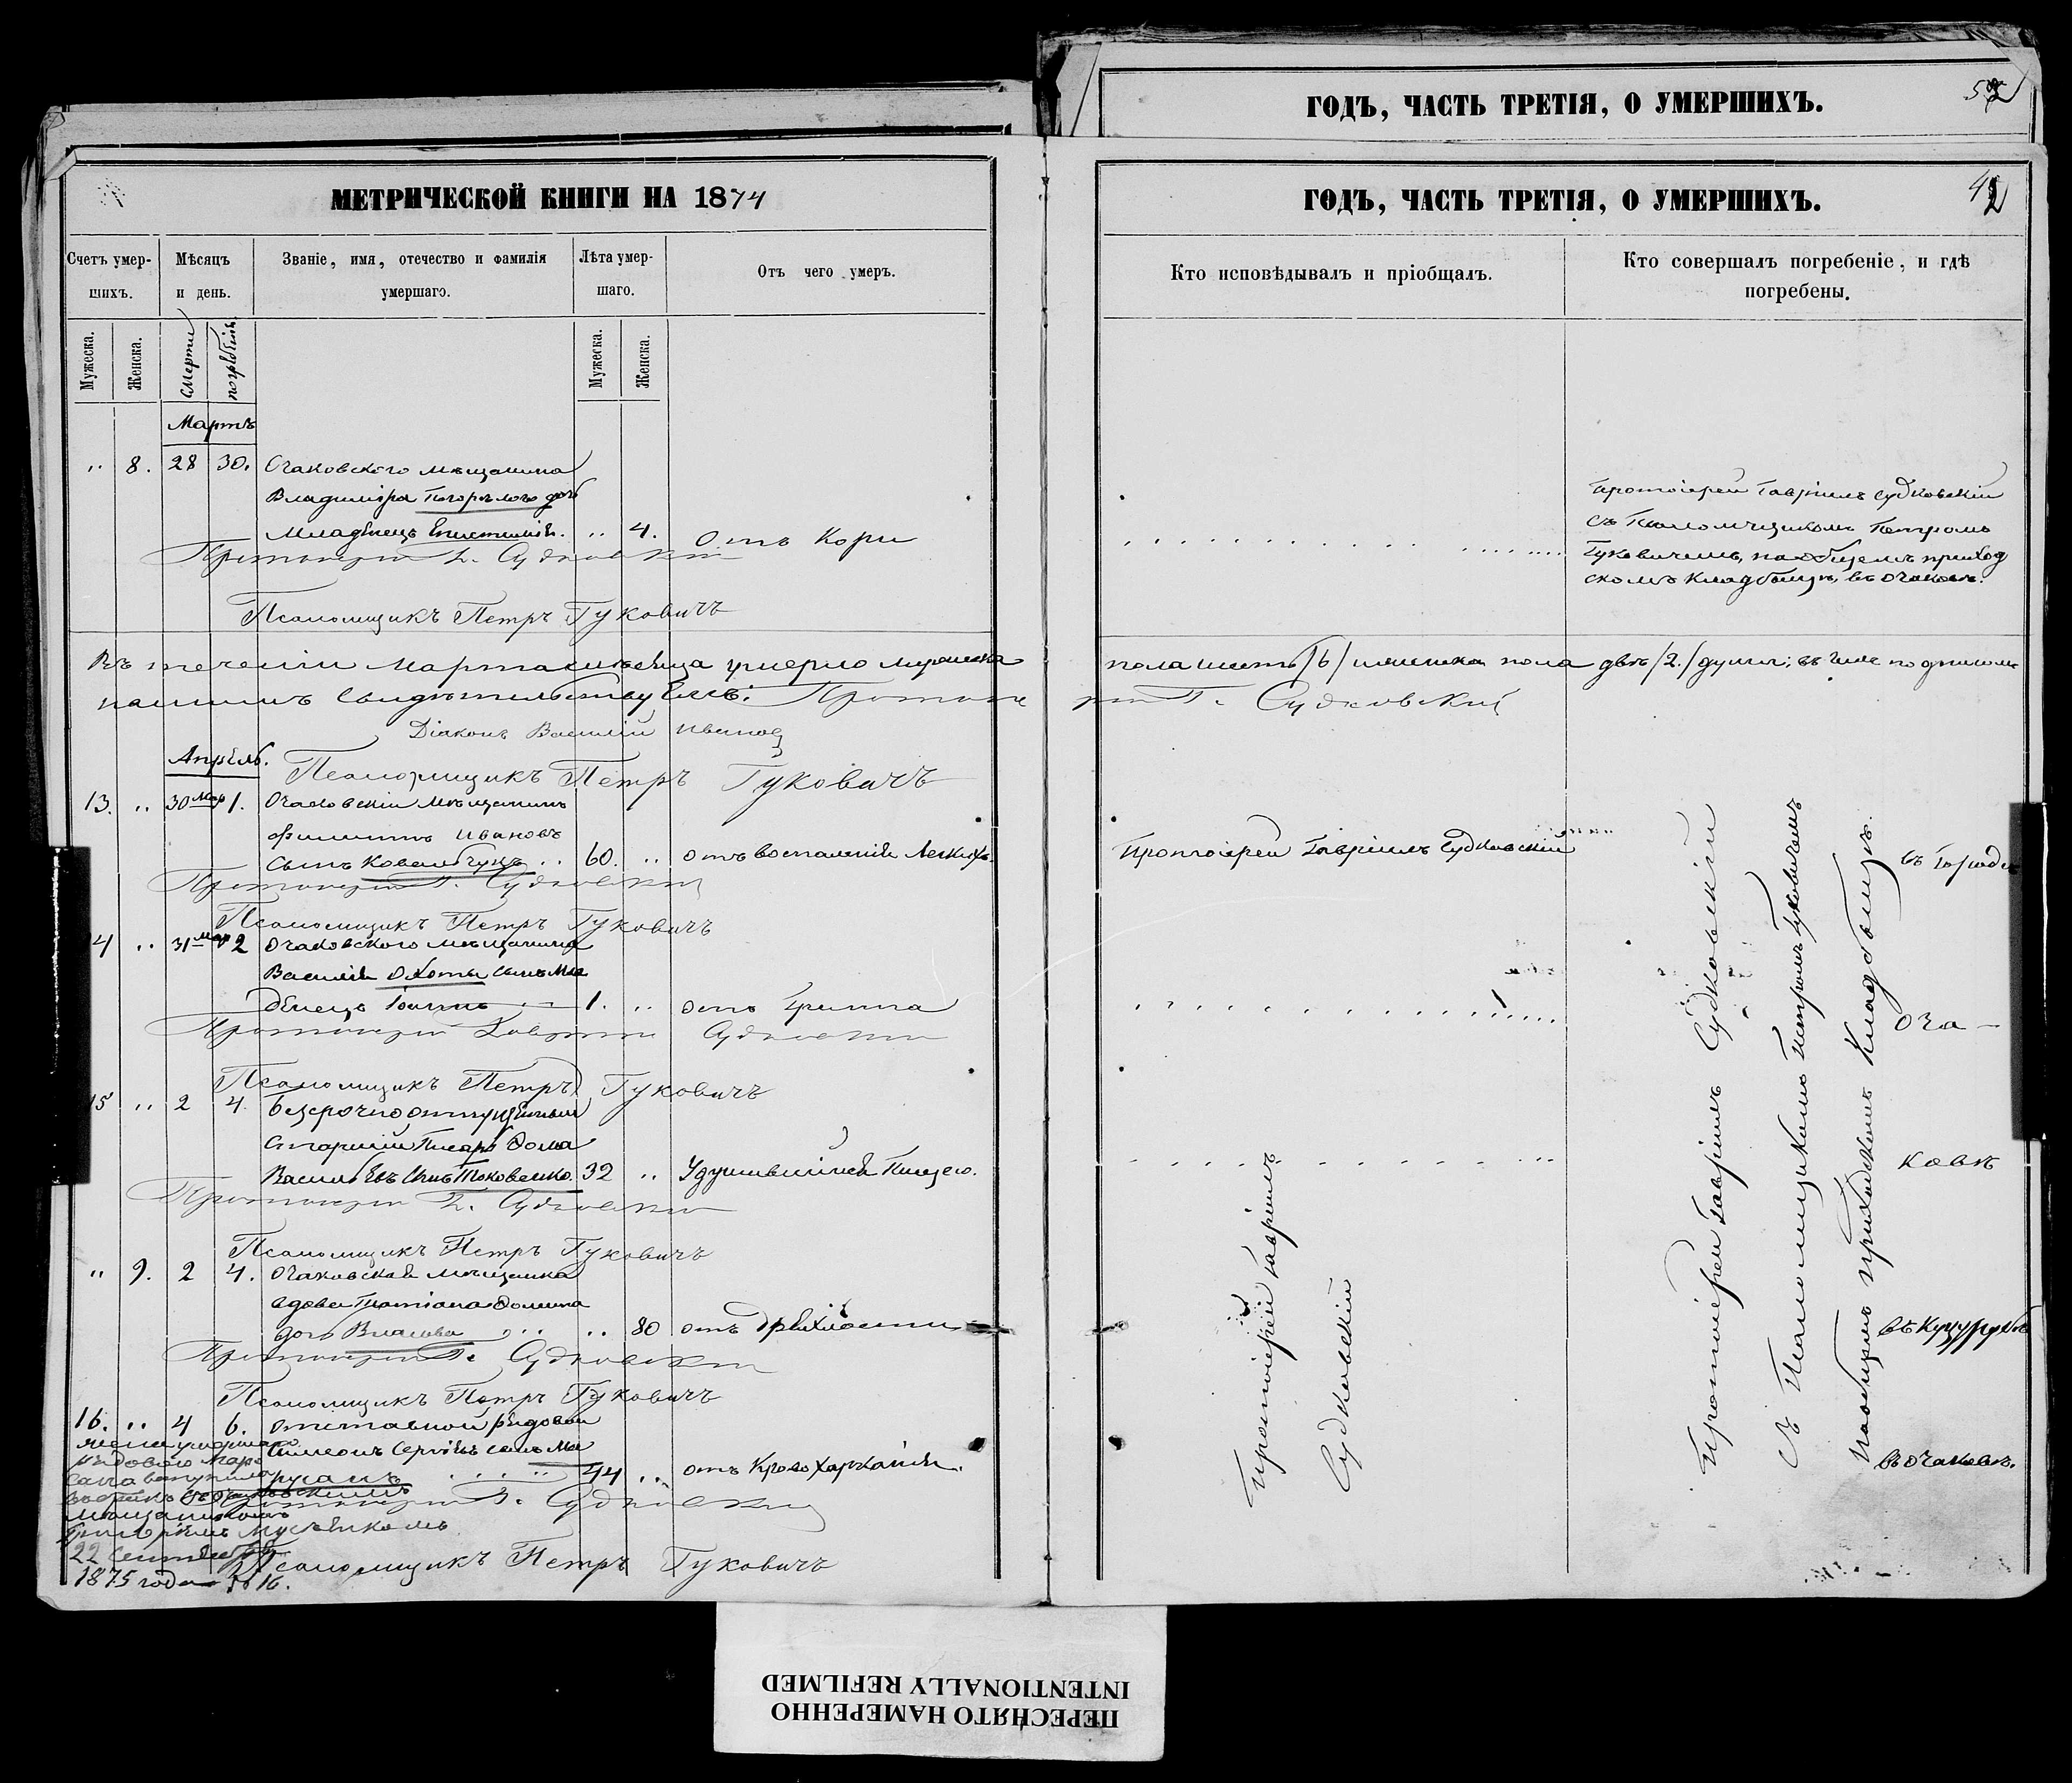 ГОДЪ, ЧАСТЬ ТРЕТІЯ, О УМЕРШИХЪ.
МЕТРИЧЕСКОЙ КНИГИ НА 1874
Счетъ умер-
шихъ.
Мѣсяцъ
и день.
Званіе, имя, отечество и фамилія
умершаго.
Лѣта умер-
шаго.
Отъ чего умеръ.
Мужеска.
Женска.
Смерти
погребенія.
Мужеска.
Женска.
Мартъ
" 8. 28 30. Очаковского мѣщанина
Владиміра Погорѣлого дочь
Младенецъ .. 4. Отъ Кори
Протоіерей Г. Судковскій
Псаломщикъ Петръ Гуковичъ
Въ теченіи Марта мѣсяца умерло мужеска
нашимъ свидѣтельствуемъ: Протоіе
Діаконъ Василій Ивановъ
Апрѣль.
Псаломщикъ Петръ Гуковичъ
13. .. 30 мар 1. Очаковскій мѣщанинъ
Филиппъ Ивановъ
сынъ .. 60. .. отъ воспаленія легкихъ.
Протоіерей Г. Судковскій
Псаломщикъ Петръ Гуковичъ
14 .. 31 мар 2 Очаковского мѣщанина
Василія Охоты сынъ мла
денецъ Іоаннъ 1. .. отъ Гриппа
Протоіерей Гавріилъ Судковскій
Псаломщикъ Петръ Гуковичъ
15 .. 2 4. безсрочноотпущенный
старшій писарь Фома
Васильевъ сынъ Токовенко. 32 .. Удушившійся пищею.
Протоіерей Г. Судковскій
Псаломщикъ Петръ Гуковичъ
" 9. 2 4. Очаковская мѣщанка
вдова Татіана Фомина
дочь Власова .. 80 отъ дряхлости
Протоіерей Г. Судковскій
Псаломщикъ Петръ Гуковичъ
16. .. 4 6. Отставной рядовой
Симеонъ Сергіевъ сынъ Ма
русанъ 44 .. отъ Кровохарканія.
Жена умершаго
рядового Мару
сана вступила
въ бракъ съ Очаковскимъ
мѣщаниномъ
22 Сентября
1875 года № 16.
Протоіерей Г. Судковскій
Псаломщикъ Петръ Гуковичъ
ГОДЪ, ЧАСТЬ ТРЕТІЯ, О УМЕРШИХЪ.
Кто исповѣдывалъ и пріобщалъ.
Кто совершалъ погребеніе, и гдѣ
погребены.
Протоіерей Гавріилъ Судковскій
съ Псаломщикомъ Петромъ
Гуковичемъ, на общемъ приход
скомъ кладбищѣ, въ Очаковѣ.
пола шесть /6/ женска пола двѣ /2./ души; въ чемъ подписомъ
рей Г. Судковскій
Протоіерей Гавріилъ Судковскій
Протоіерей Гавріилъ
Судковскій
Протоіерей Гавріилъ Судковскій
съ Псаломщикомъ Петромъ Гуковичемъ
на общемъ приходскомъ Кладбищѣ.
въ Городѣ
Оча-
ковѣ
въ Куцурубѣ
въ Очаковѣ.
ПЕРЕСНЯТО НАМЕРЕННО
INTENTIONALLY REFILMED